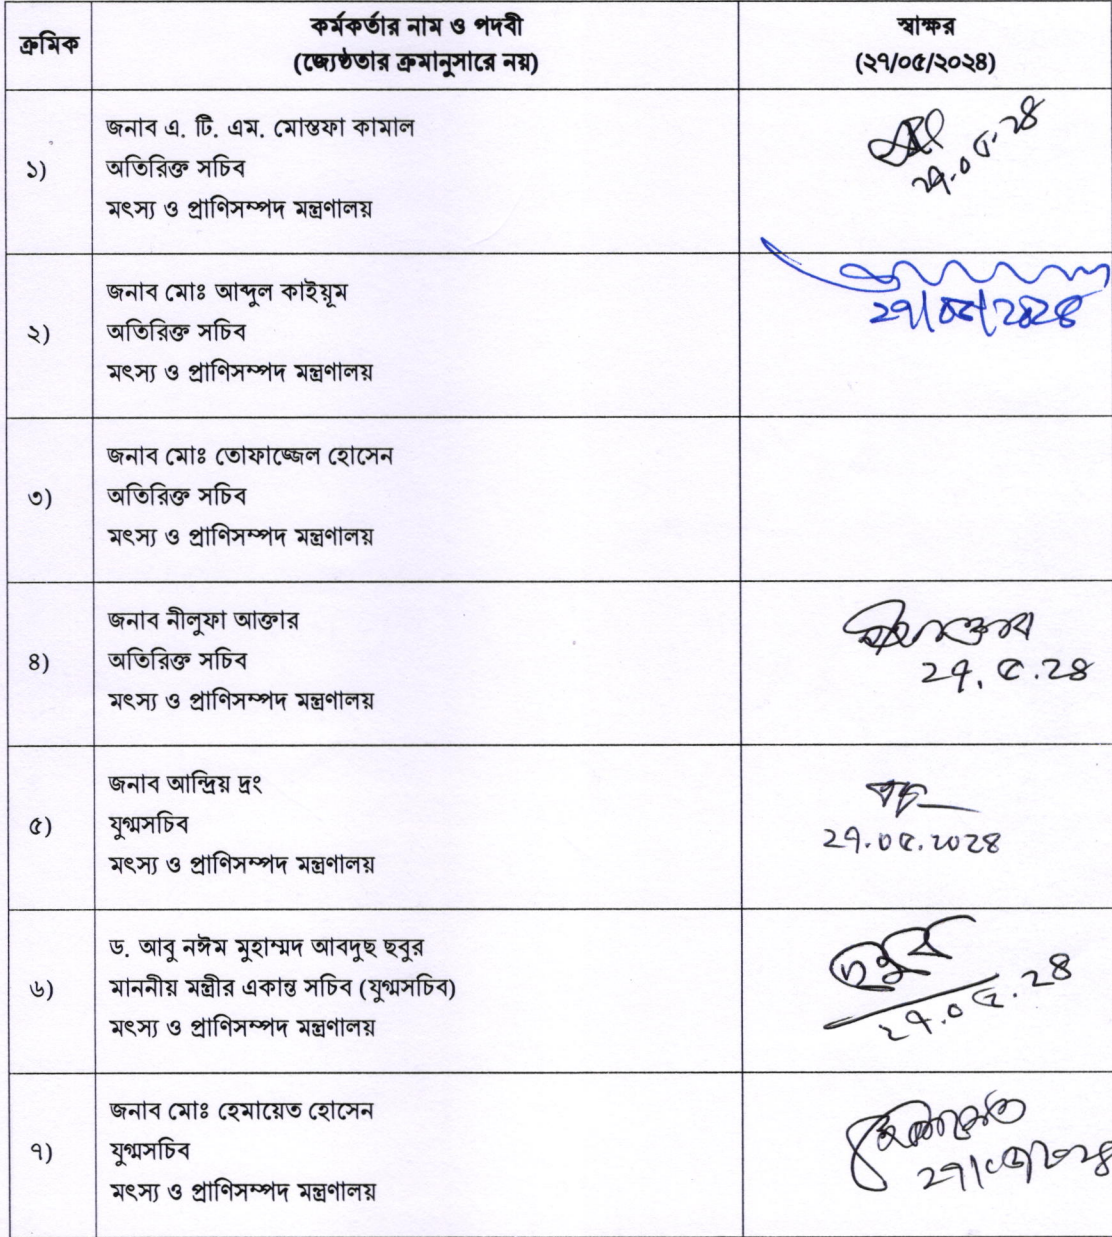 ক্রমিক
কর্মকর্তার নাম ও পদবী
(জ্যেষ্ঠতার ক্রমানুসারে নয়)
স্বাক্ষর
(২৭/০৫/২০২৪)
১)
জনাব এ. টি. এম. মোস্তফা কামাল
অতিরিক্ত সচিব
মৎস্য ও প্রাণিসম্পদ মন্ত্রণালয়
২৭.০৫.২৪
২)
জনাব মোঃ আব্দুল কাইয়ূম
অতিরিক্ত সচিব
মৎস্য ও প্রাণিসম্পদ মন্ত্রণালয়
২৭/০৫/২০২৪
৩)
জনাব মোঃ তোফাজ্জেল হোসেন
অতিরিক্ত সচিব
মৎস্য ও প্রাণিসম্পদ মন্ত্রণালয়
৪)
জনাব নীলুফা আক্তার
অতিরিক্ত সচিব
মৎস্য ও প্রাণিসম্পদ মন্ত্রণালয়
২৭.৫.২৪
৫)
জনাব আন্দ্রিয় দ্রং
যুগ্মসচিব
মৎস্য ও প্রাণিসম্পদ মন্ত্রণালয়
২৭.০৫.২০২৪
৬)
ড. আবু নঈম মুহাম্মদ আবদুছ ছবুর
মাননীয় মন্ত্রীর একান্ত সচিব (যুগ্মসচিব)
মৎস্য ও প্রাণিসম্পদ মন্ত্রণালয়
২৭.০৫.২৪
৭)
জনাব মোঃ হেমায়েত হোসেন
যুগ্মসচিব
মৎস্য ও প্রাণিসম্পদ মন্ত্রণালয়
২৭/০৫/২০২৪